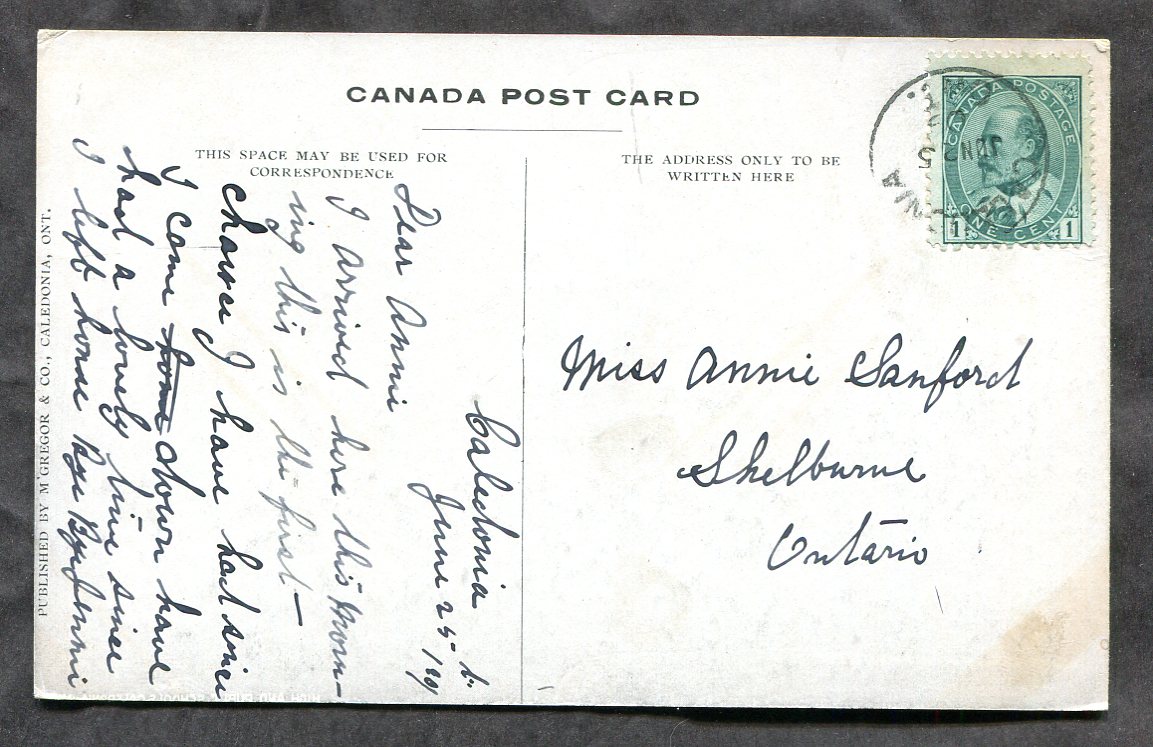 CANADA POST CARD
THIS SPACE MAY BE USED FOR
CORRESPONDENCE
THE ADDRESS ONLY TO BE
WRITTEN HERE
CANADA POSTAGE
1 ONE CENT 1
JUN 25
Caledonia
June 25/09
Dear Annie
I arrived here this morn-
ing this is the first-
chance I have had since
I come home down have
had a lovely time since
I left home Bye Bye
Miss Annie Sanford
Shelburne
Ontario
PUBLISHED BY M'GREGOR & CO., CALEDONIA, ONT.